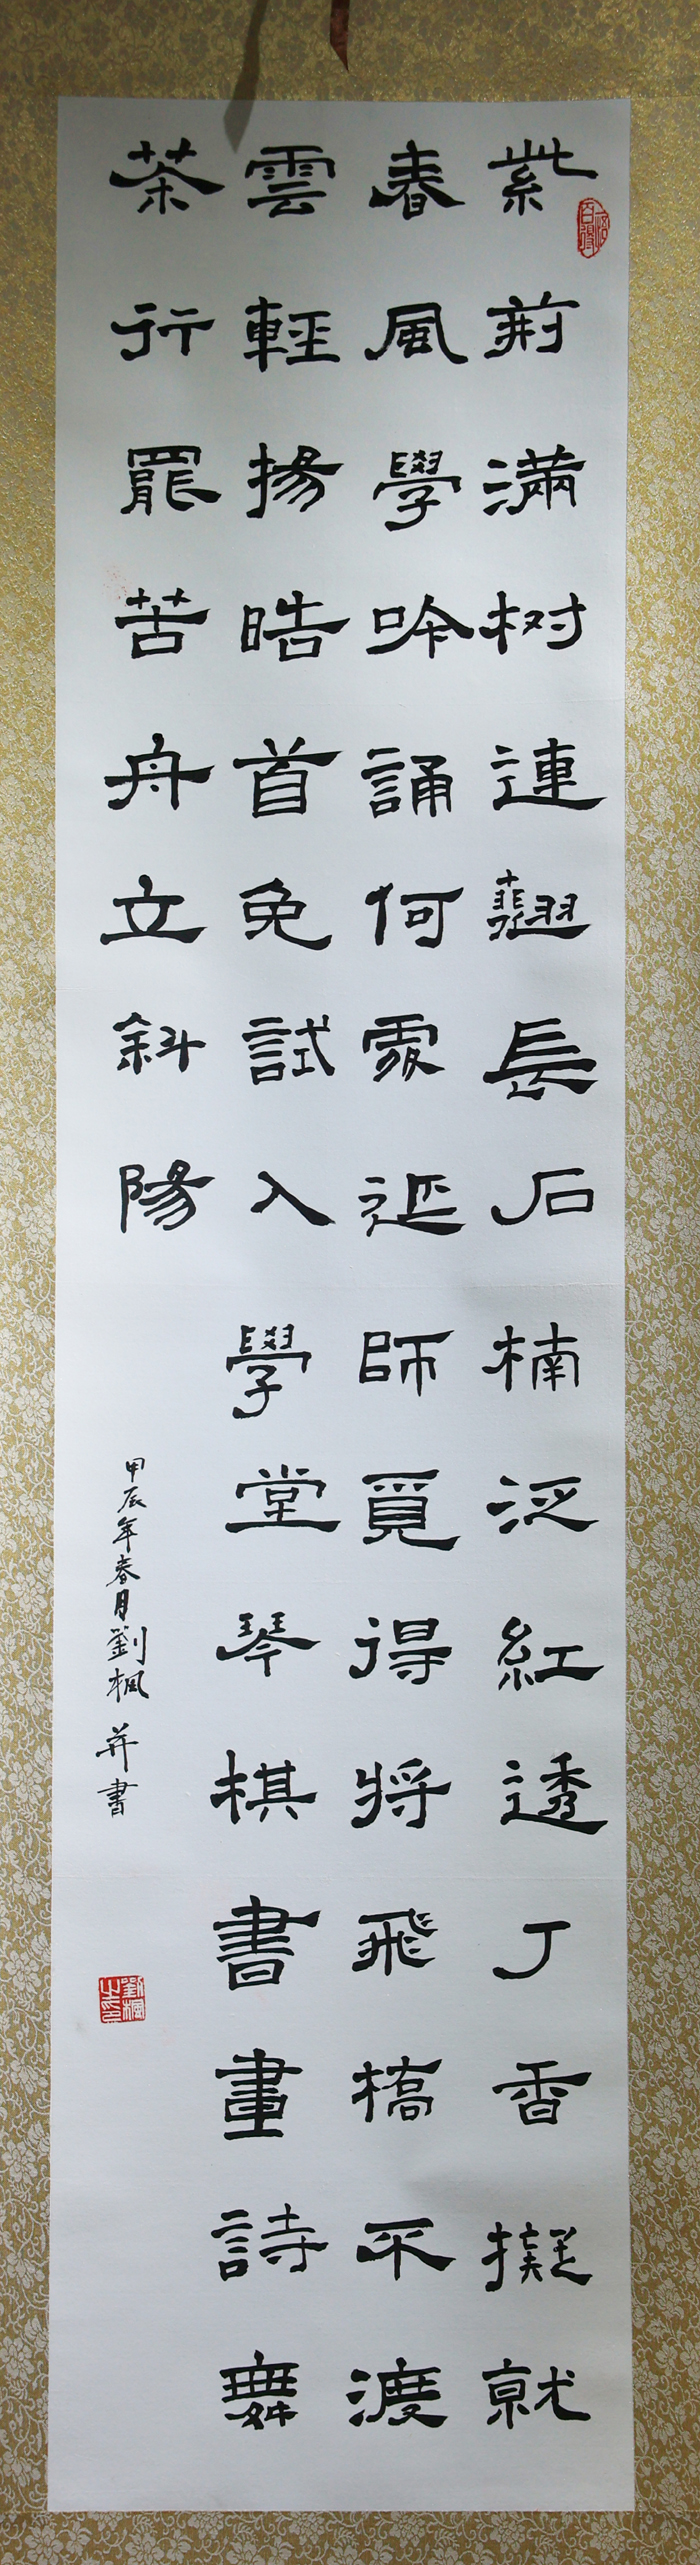 紫荊滿树連翹長石楠泛紅透丁香擬就
春風學吟誦何處延師覓得將飛橋不渡
雲輕揚皓首免試入學堂琴棋書畫詩舞
茶行罷苦舟立斜陽
甲辰年春月劉楓并書
劉楓之印